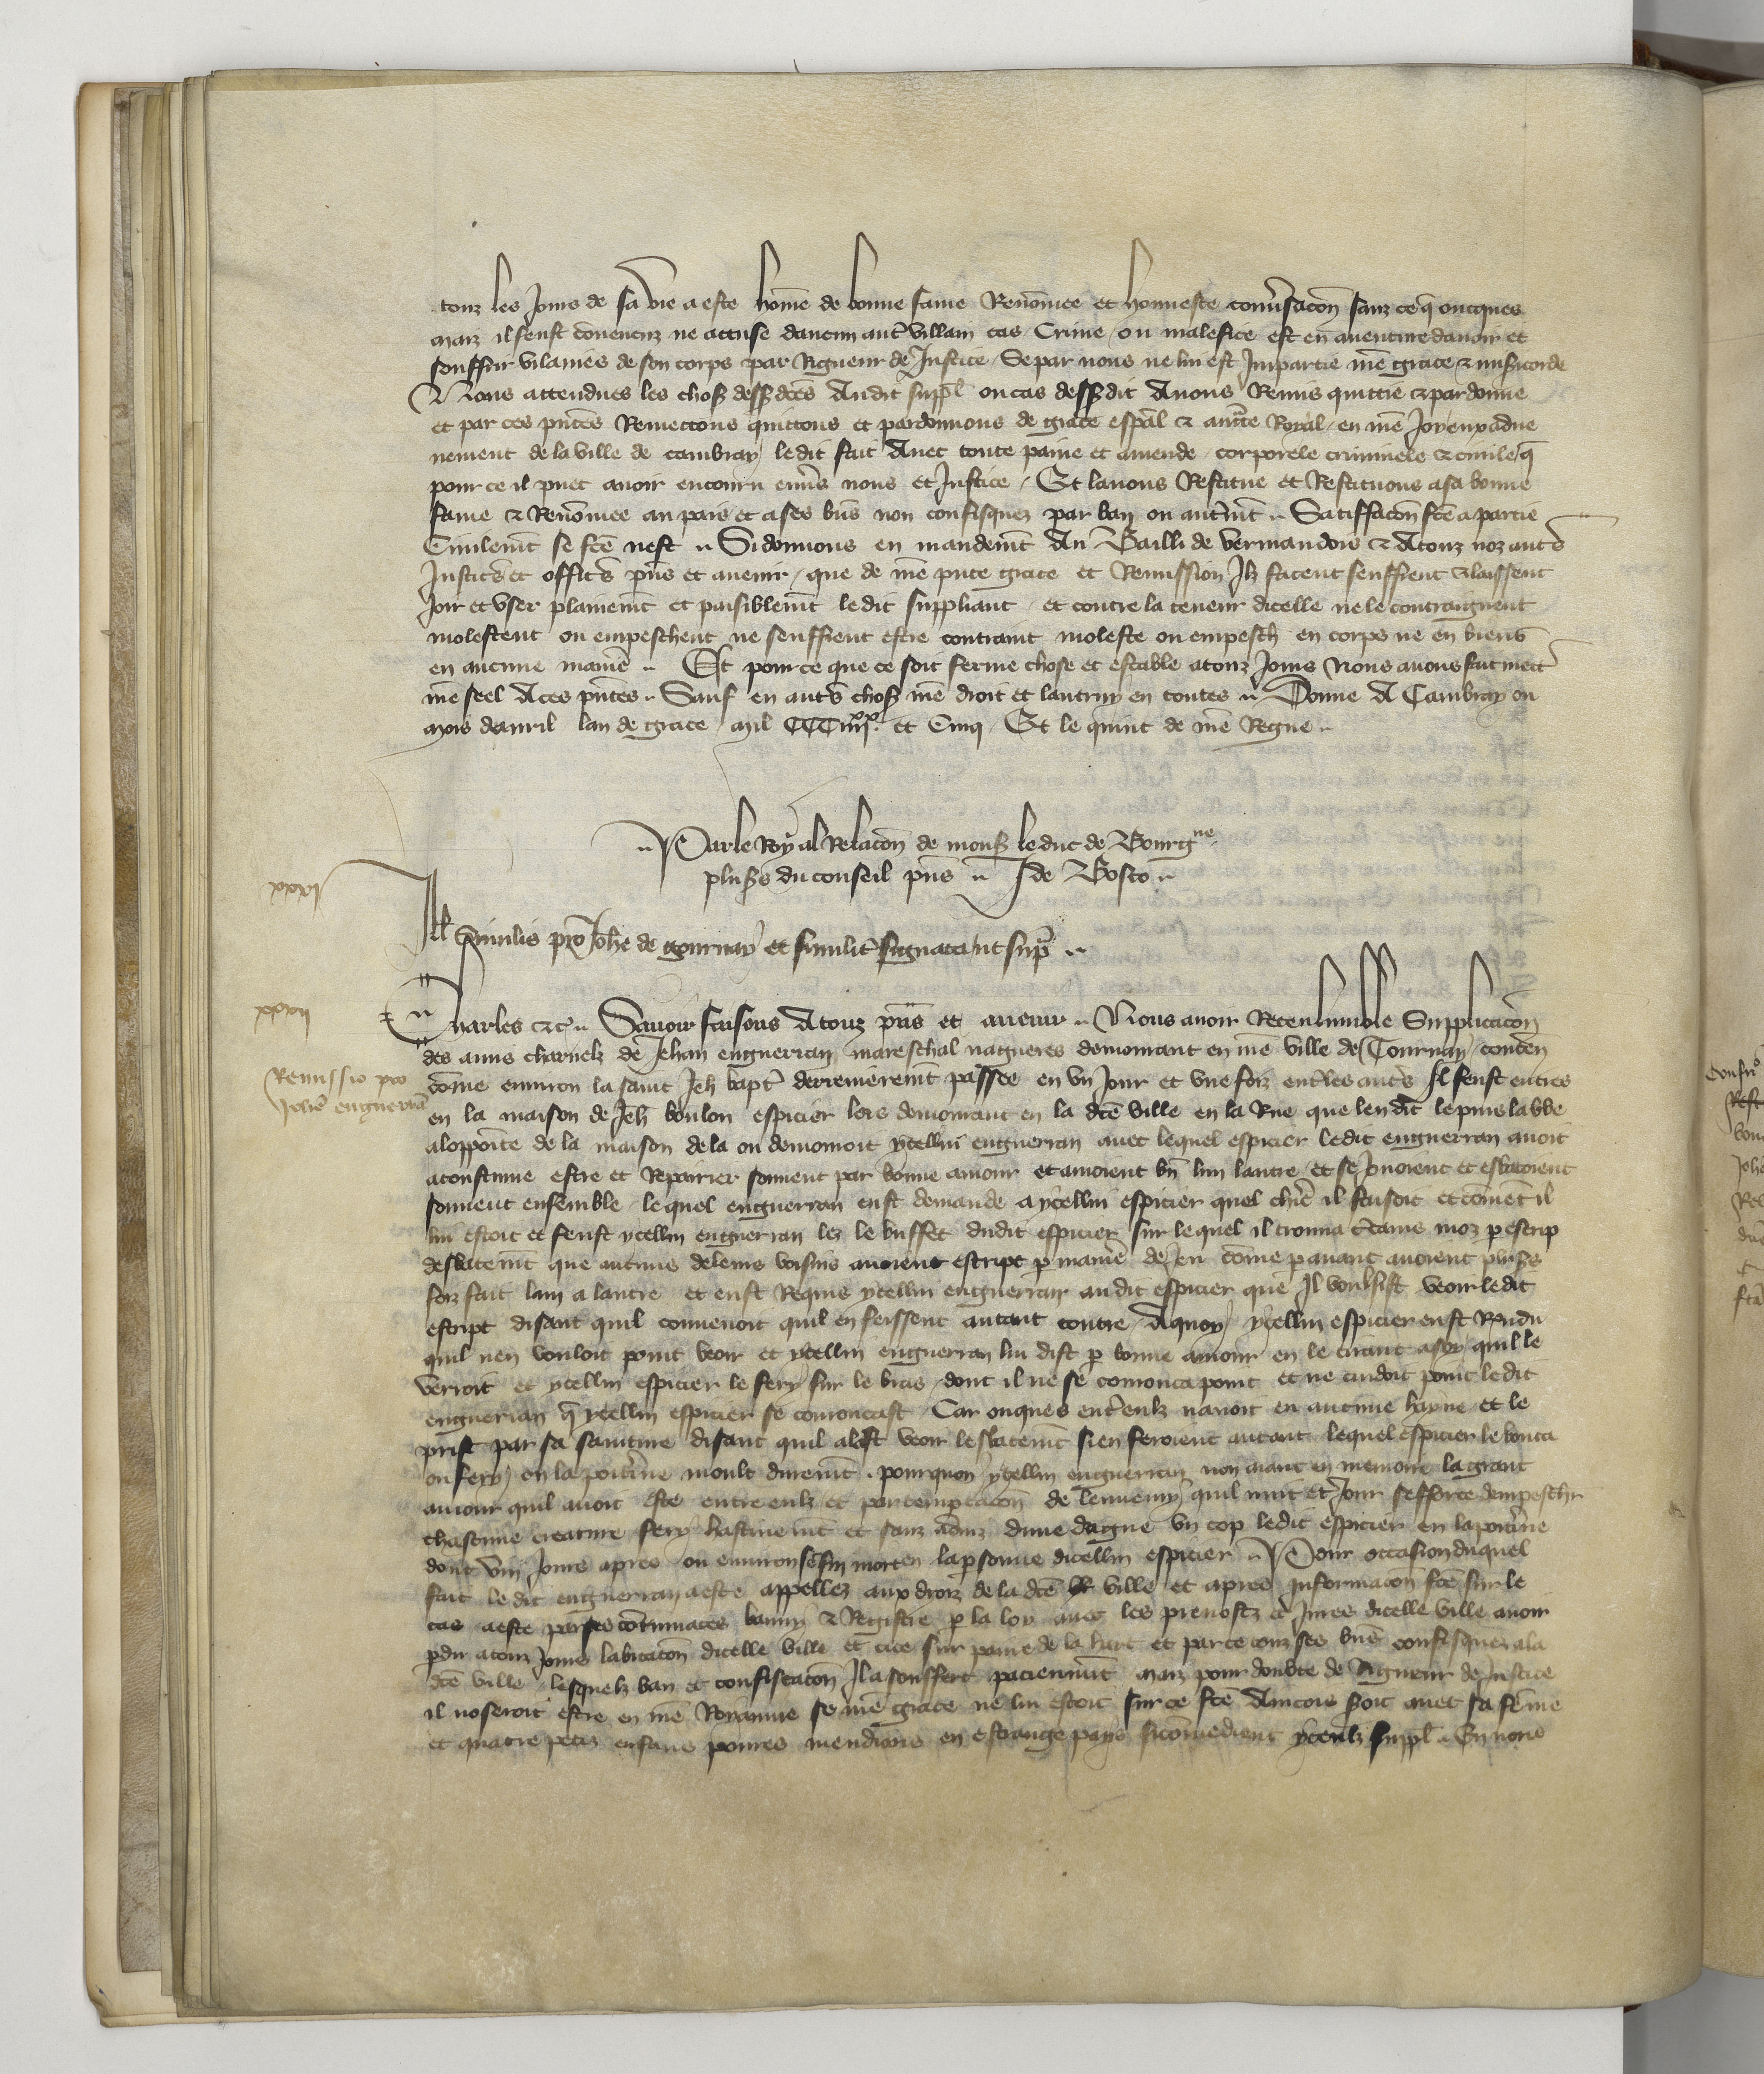 touz les jours de sa vie a este home de bonne fame Renomee et honneste conv̾sacōn sanz ce q̄ oncques
maiz il feust convencuz ne accuse daucun aut̾ villain cas Crime ou malefice est en aventure davoir et
souffrir vilanies de son corps par Rigueur de Justice Se par nous ne lui est Impartie nr̄e grace & mis̾icorde
Nous attendues les choses dess̾ dc̄es Audit suppl̄ ou cas dess̾ dit Avons Remis quittie & pardonne
et par ces pn̄tes Remectons quittons et pardonnons de grace esp̄al & auct̄te Royal en nr̄e joyeux adve
nement de la ville de cambray le dit fait Avec toute paine et amende corporele criminele & civile q̄
pour ce il puet avoir encouru env̾s nous et Justice Et lavons Restitue et Restituons a sa bonne
fame & Renomee au pais et a ses biēs non confisquez par ban ou autrem̄t Satisfacōn fc̄e a partie
Civilem̄t se fc̄e nest Si donnons en mandem̄t Au Bailli de Vermandois & A touz noz aut̾s
Justic̾s et offic̾s pn̄s et avenir que de nr̄e pn̄te grace et Remission Ilz facent seuffrent & laissent
Joir et user plainem̄t et paisiblem̄t le dit suppliant et contre la teneur dicelle ne le contraignent
molestent ou empeschent ne seuffrent estre contraint moleste ou empesch̄ en corps ne en biens
en aucune manie̾ Et pour ce que ce soit ferme chose et estable a touz jours Nous avons fait mett̾
nr̄e seel A ces pn̄tes Sauf en aut̾s choses nr̄e droit et lautruy en toutes Donne A Cambray ou
mois davril lan de grace mil CCC iiij xx et Cinq Et le quint de nr̄e Regne
Par le Roy a la Relacōn de mons̾ le duc de Bourgne
plus̾s du conseil pn̄s J de Bosco
lxxx
Similis pro Joh̄e de gournay et similit̾ signata ut sup̾
lxxxi
Charles &c̄ Savoir faisons A touz pn̄s et avenir Nous avoir Receu lumble Supplicacōn
des amis charnelz de Jehan enguerran mareschal nagueres demourant en nr̄e ville de Tournay conten̄
Remissio pro
Joh̄e enguerran
come environ la saint Jeh̄ bapt̾ derrenierem̄t passee en un jour et une foiz ent̾ les aut̾s Il feust entres
en la maison de Jeh̄ boulon espicier lors demourant en la dc̄e ville en la Rue que len dit le puis labbe
a lopposite de la maison de la ou demouroit ycellui enguerran avec lequel espicier ledit enguerran avoit
acoustume estre et Repairier souvent par bonne amour et amoient bn̄ lun lautre et se jouoient et esbatoient
souvent ensemble lequel enguerran eust demande a ycellui espicier quel chie̾ il faisoit et coment il
lui estoit et feust ycellui enguerran lez le buffet dudit espicier sur lequel il trouva c̾tains moz p escrip
desbatem̄t que aucuns de leurs voisins avoient escript p manie̾ de jeu come p avant avoient plus̾s
foiz fait lun a lautre et eust Requis ycellui enguerran audit espicier que Il voulsist veoir ledit
escript disant quil convenoit quil en feissent autant contre A quoy ycellui espicier eust Rn̄du
quil nen vouloit point veoir et ycellui enguerran lui dist p bonne amour en le tirant a soy quil le
verroit et ycellui espicier le fery sur le bras dont il ne se courrouca point et ne cuidoit point ledit
enguerran q̄ ycellui espicier se courroucast Car onques ent̾ eulz navoit eu aucune hayne et le
prist par sa sainture disant quil alast veoir lesbatem̄t si en feroient autant lequel espicier le bouta
ou fery en la poitrine moult durem̄t pourquoy ycellui enguerran non aiant en memoire la grant
amour quil avoit este entre eulz et par temptacōn de lennemy quil nuit et jour sefforce dempescher
chascune creature fery hastivem̄t et sanz advis dune dague un cop ledit espicier en la poitrine
dont viij jours apres ou environ sensui mort en la p̄sonne dicellui espicier Pour occasion duquel
fait le dit enguerran a este appellez aux droiz de la dc̄e ville et apres informacōn fc̄e sur le
cas a este par ses contumaces banny & Registre p la loy avec les prevostz et jures dicelle ville avoir
p̄du a touz jours labitacōn dicelle ville et cite sur paine de la hart et par ce touz ses biēs confisques a la
dc̄e ville lesquelz ban et confiscacōn Il a souffert pacienm̄t maiz pour doubte de Rigueur de justice
il noseroit estre en nr̄e Royaume se nr̄e grace ne lui estoit sur ce fc̄e Aincois soit avec sa feme
et quatre petiz enfans povres mendians en estrange pays sicome dient yceulz suppl̄ En nous